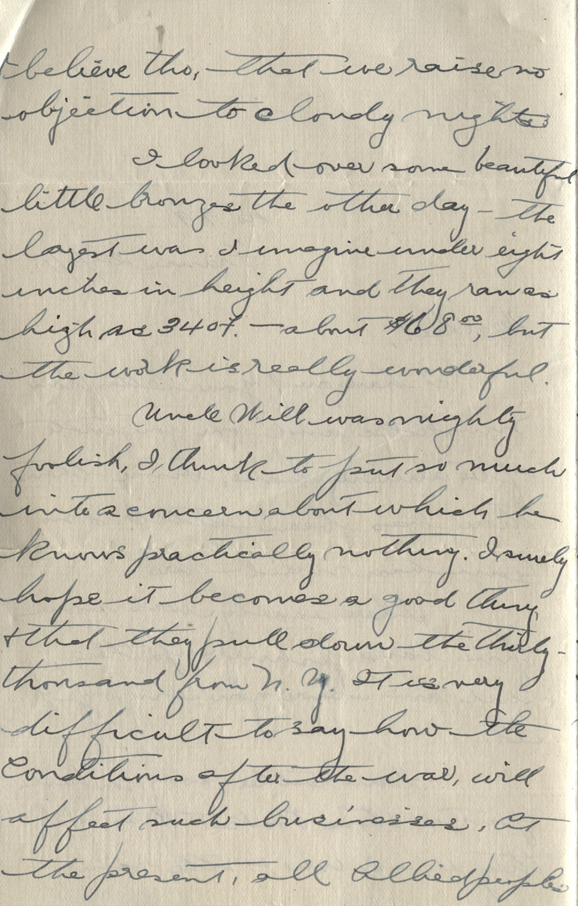 believe tho, that we raise no
objection to cloudy nights
I looked over some beautiful
little bronzes the other day - the
largest was I imagine under eight
inches in height and they ran as
high as 340f. - about $68.00, but
the work is really wonderful.
Uncle Will was mighty
foolish, I think to put so much
into a concern about which he
knows practically nothing. I surely
hope it becomes a good thing
+ that they pull down the thirty-
thousand from N. Y. It is very
difficult to say how the
Conditions after the war, will
affect such businesses. At
the present, all Allied peoples